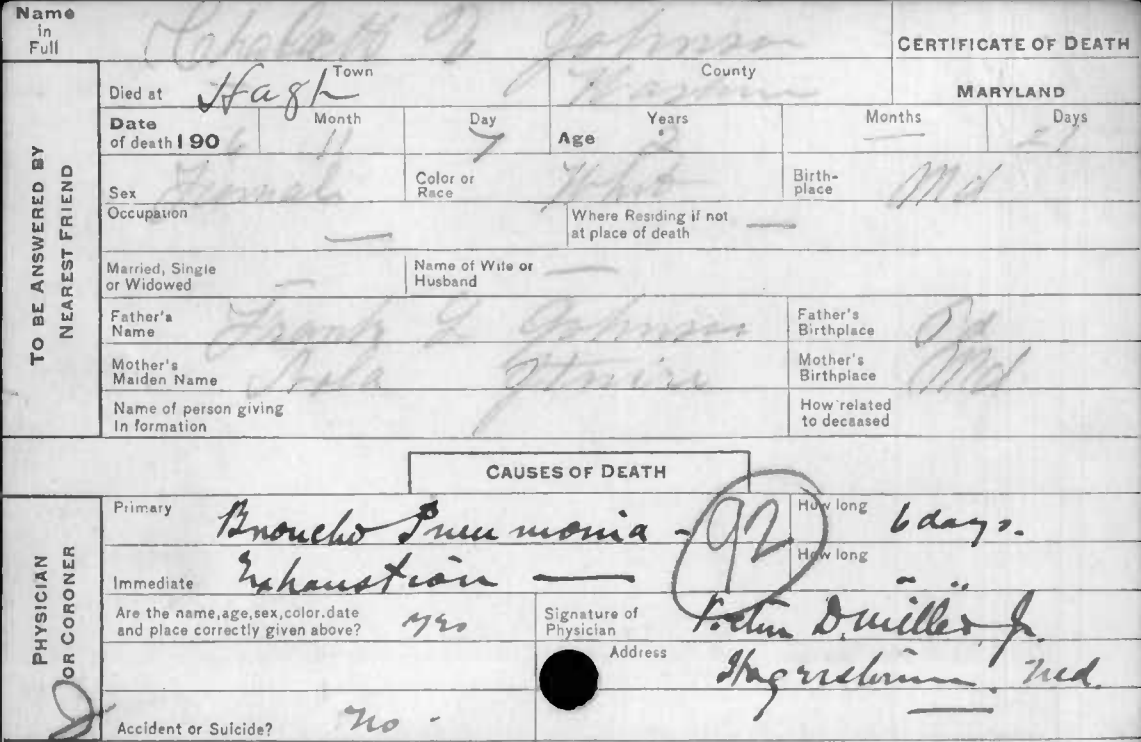 Name in Full Johnson
CERTIFICATE OF DEATH
TO BE ANSWERED BY NEAREST FRIEND
Died at Hagh Town County
MARYLAND
Date of death 190 6 Month 11 Day 7 Age Years 2 Months — Days 27
Sex Female Color or Race White Birth-place Md
Occupation — Where Residing if not at place of death —
Married, Single or Widowed — Name of Wife or Husband —
Father's Name Frank Johnson Father's Birthplace
Mother's Maiden Name Mother's Birthplace Md
Name of person giving In formation How related to deceased
CAUSES OF DEATH
PHYSICIAN OR CORONER
Primary Broncho Pneumonia - 92 How long 6 days.
Immediate Exhaustion — How long " "
Are the name, age, sex, color. date and place correctly given above? yes Signature of Physician Victor D. Miller, Jr.
Address Hagerstown, Md.
Accident or Suicide? No -